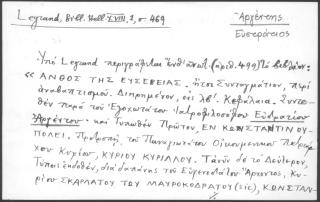 Legrand, Bibl. Hell. XVIII, 1, σ. 469
Ἀργέντης
Εὐστράτιος
Ὑπὸ Legrand περιγράφεται (ἀριθ. 499) τὸ βιβλίον:
« ΑΝΘΟΣ ΤΗΣ ΕΥΣΕΒΕΙΑΣ. ἤτοι Συνταγμάτιον, περὶ
ἀναβαπτισμοῦ. Διηρημένον, εἰς λβ'. Κεφάλαια. Συντε-
θὲν παρὰ τοῦ Ἐξοχωτάτου Ἰατροφιλοσόφου Εὐστρατίου
Ἀργέντου· καὶ Τυπωθὲν Πρῶτον, ΕΝ ΚΩΝΣΤΑΝΤΙΝΟΥ-
ΠΟΛΕΙ. Προτροπῇ, τοῦ Παναγιωτάτου Οἰκουμενικοῦ Πατριάρ-
χου Κυρίου, ΚΥΡΙΟΥ ΚΥΡΙΛΛΟΥ. Τανῦν δὲ τὸ Δεύτερον,
Τύποις ἐκδοθέν, διὰ δαπάνης τοῦ Εὐγενεστάτου Ἄρχοντος, Κυ-
ρίου ΣΚΑΡΛΑΤΟΥ ΤΟΥ ΜΑΥΡΟΚΟΔΡΑΤΟΥ (sic), ΚΩΝΣΤΑΝ-